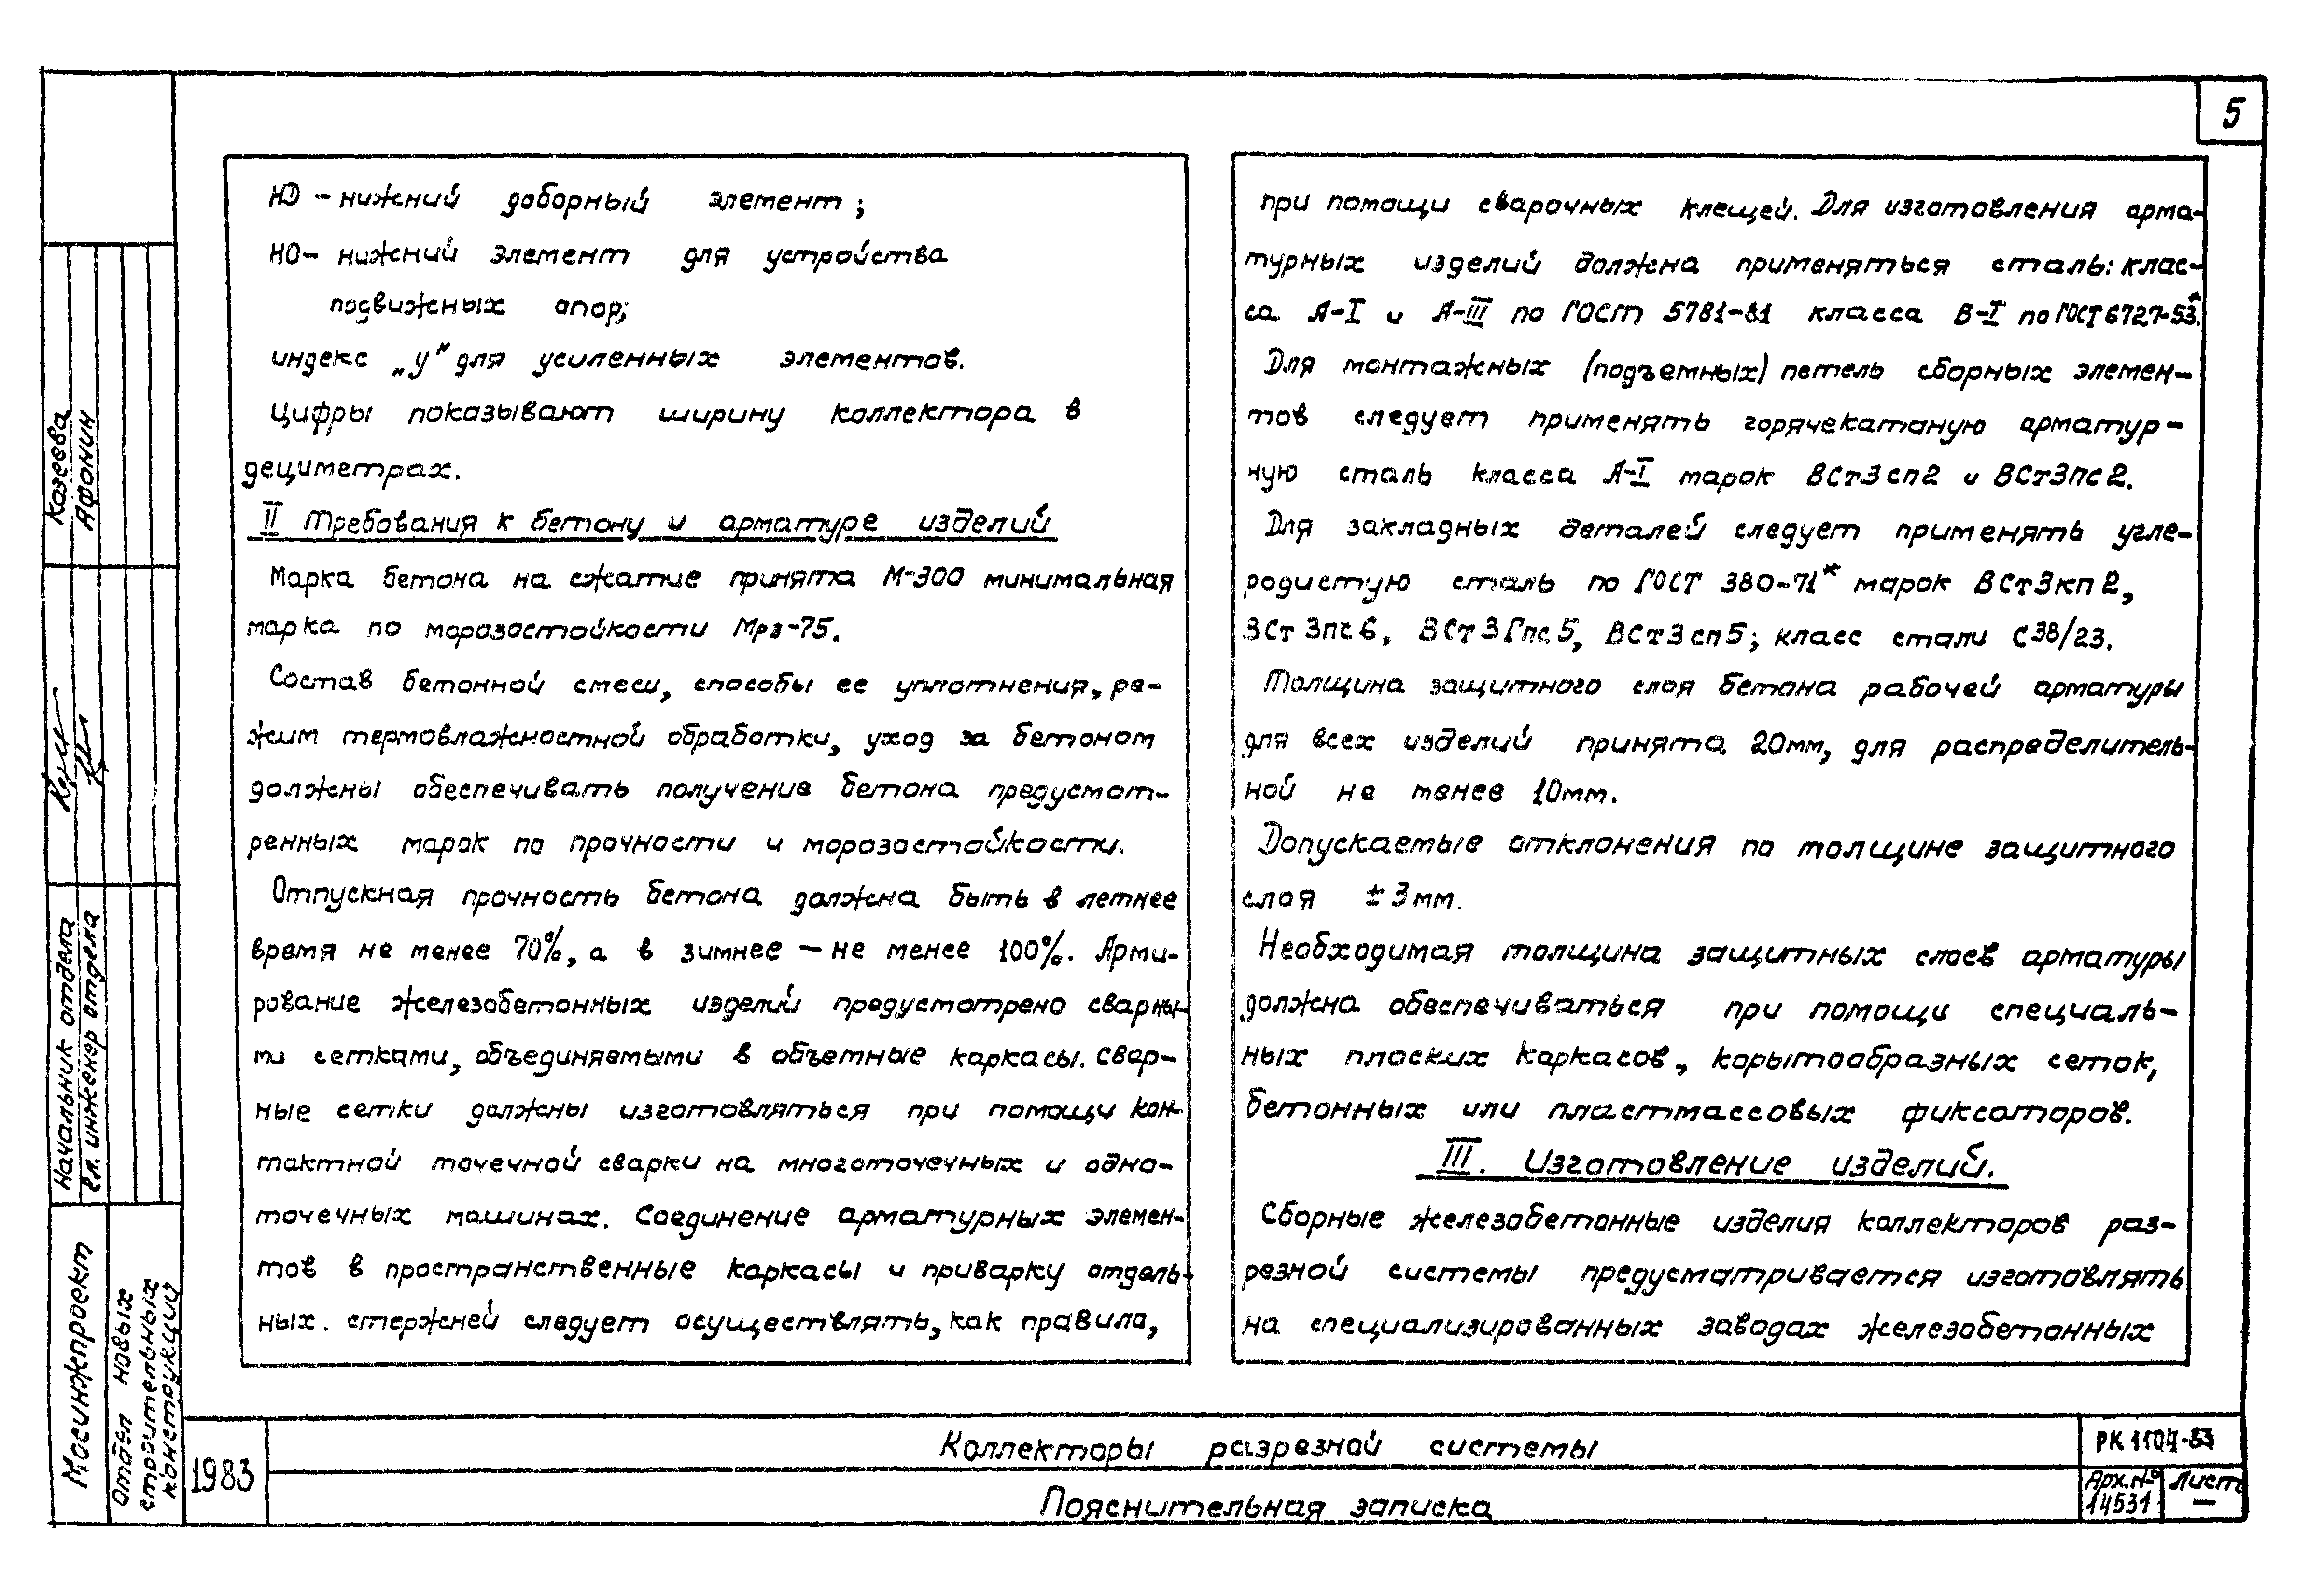 5
НД - нижний доборный элемент;
НО- нижний элемент для устройства
подвижных опор;
индекс „у" для усиленных элементов.
Цифры показывают ширину коллектора в
дециметрах.
II Требования к бетону и арматуре изделий
Марка бетона на сжатие принята М-300 минимальная
марка по морозостойкости Мрз-75.
Состав бетонной смеси, способы ее уплотнения, ре-
жим термовлажностной обработки, уход за бетоном
должны обеспечивать получение бетона предусмот-
ренных марок по прочности и морозостойкости.
Отпускная прочность бетона должна быть в летнее
время не менее 70%, а в зимнее - не менее 100%. Арми-
рование железобетонных изделий предусмотрено сварны-
ми сетками, объединяемыми в объемные каркасы. Свар-
ные сетки должны изготовляться при помощи кон-
тактной точечной сварки на многоточечных и одно-
точечных машинах. Соединение арматурных элемен-
тов в пространственные каркасы и приварку отдель-
ных. стержней следует осуществлять, как правило,
при помощи сварочных клещей. Для изготовления арма-
турных изделий должна применяться сталь: клас-
са А-I и А-III по ГОСТ 5781-81 класса В-I по ГОСТ 6727-53*.
Для монтажных (подъемных) петель сборных элемен-
тов следует применять горячекатаную арматур-
ную сталь класса А-I марок ВСт3сп2 и ВСт3пс2.
Для закладных деталей следует применять угле-
родистую сталь по ГОСТ 380-71* марок ВСт3кп2,
ВСт3пс6, ВСт3Гпс5, ВСт3сп5; класс стали С38/23.
Толщина защитного слоя бетона рабочей арматуры
для всех изделий принята 20мм, для распределитель-
ной не менее 10мм.
Допускаемые отклонения по толщине защитного
слоя ±3мм.
Необходимая толщина защитных слоев арматуры
должна обеспечиваться при помощи специаль-
ных плоских каркасов, корытообразных сеток,
бетонных или пластмассовых фиксаторов.
III. Изготовление изделий.
Сборные железобетонные изделия коллекторов раз-
резной системы предусматривается изготовлять
на специализированных заводах железобетонных
Козеева
Афонин
Начальник отдела
Гл. инженер отдела
Мосинжпроект
Отдел новых
строительных
конструкций
1983
Коллекторы разрезной системы
Пояснительная записка
РК 1104-83
Арх.№
14531
Лист
—